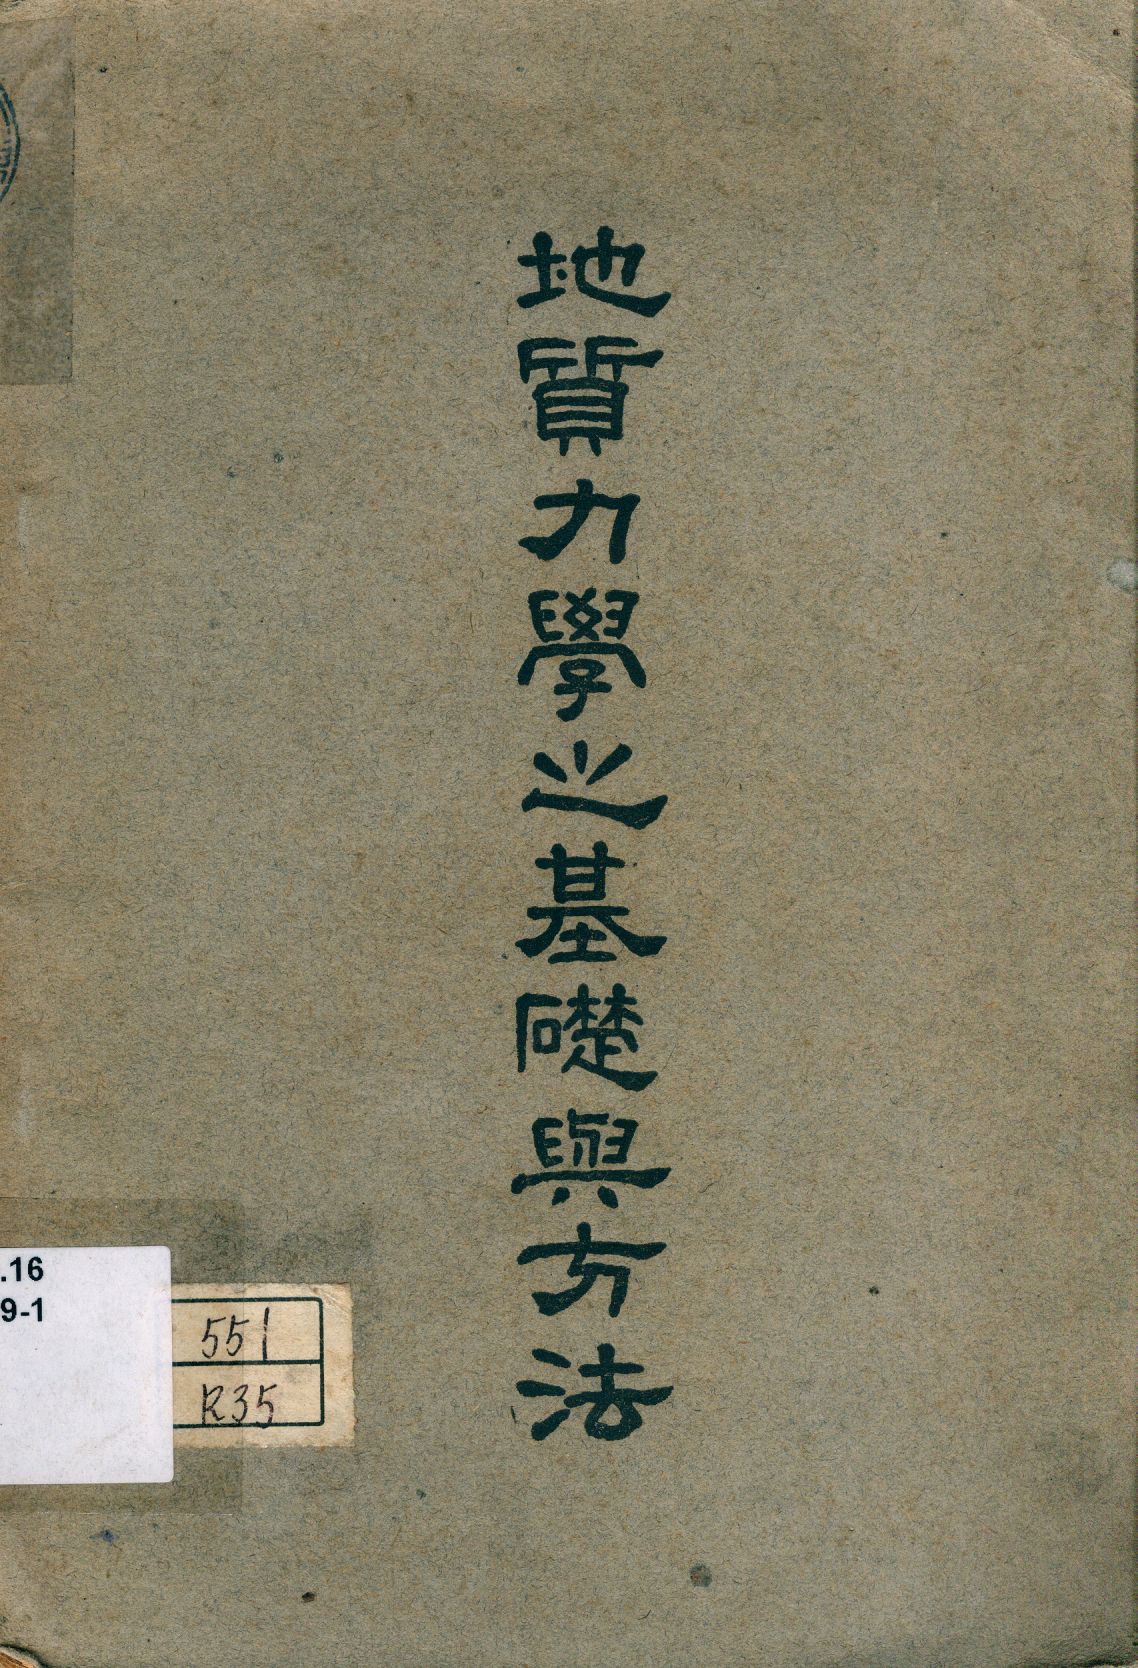 地質力學之基礎與方法
.16
9-1
551
R35